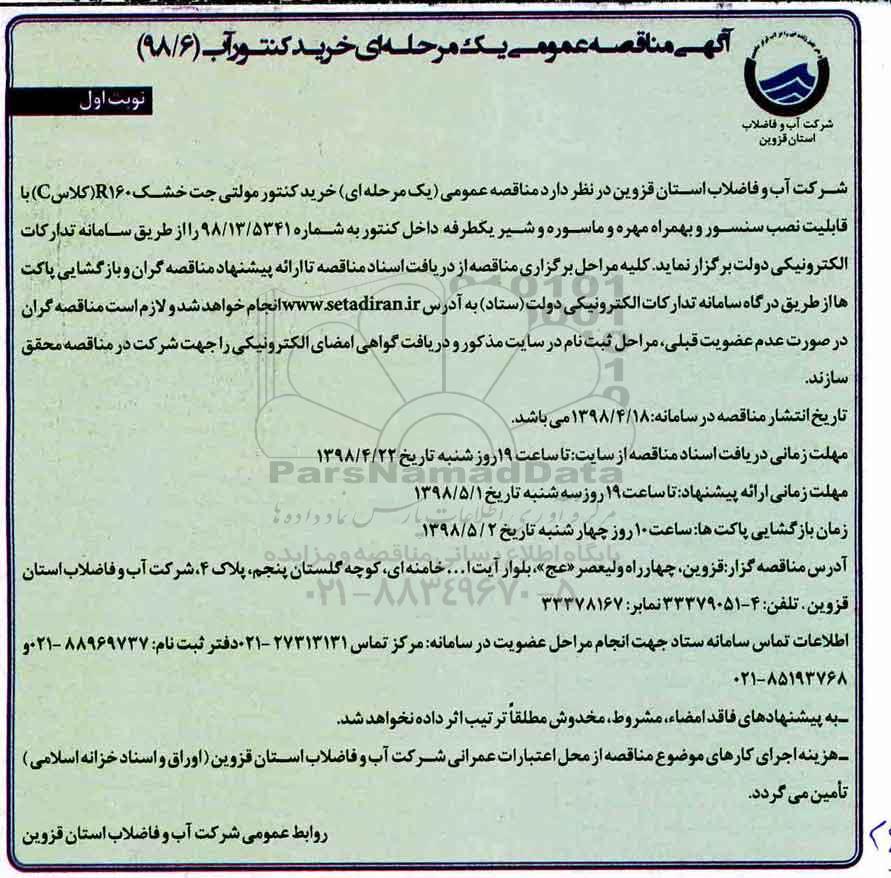 آگهی مناقصه عمومی یک مرحله‌ای خرید کنتور آب (۹۸/۶)
شرکت آب و فاضلاب
استان قزوین
نوبت اول
شرکت آب و فاضلاب استان قزوین در نظر دارد مناقصه عمومی (یک مرحله ای) خرید کنتور مولتی جت خشک R۱۶۰(کلاس C) با
قابلیت نصب سنسور و بهمراه مهره و ماسوره و شیر یکطرفه داخل کنتور به شماره ۹۸/۱۳/۵۳۴۱ را از طریق سامانه تدارکات
الکترونیکی دولت برگزار نماید. کلیه مراحل برگزاری مناقصه از دریافت اسناد مناقصه تا ارائه پیشنهاد مناقصه گران و بازگشایی پاکت
ها از طریق درگاه سامانه تدارکات الکترونیکی دولت (ستاد) به آدرس www.setadiran.ir انجام خواهد شد و لازم است مناقصه گران
در صورت عدم عضویت قبلی، مراحل ثبت نام در سایت مذکور و دریافت گواهی امضای الکترونیکی را جهت شرکت در مناقصه محقق
سازند.
تاریخ انتشار مناقصه در سامانه: ۱۳۹۸/۴/۱۸ می باشد.
مهلت زمانی دریافت اسناد مناقصه از سایت: تا ساعت ۱۹ روز شنبه تاریخ ۱۳۹۸/۴/۲۲
ParsNamadData
مهلت زمانی ارائه پیشنهاد: تا ساعت ۱۹ روز سه شنبه تاریخ ۱۳۹۸/۵/۱
مرکز فرآوری اطلاعات پارس نماد داده ها
زمان بازگشایی پاکت ها: ساعت ۱۰ روز چهار شنبه تاریخ ۱۳۹۸/۵/۲
پایگاه اطلاع رسانی مناقصه و مزایده
آدرس مناقصه گزار: قزوین، چهارراه ولیعصر «عج»، بلوار آیت ا... خامنه ای، کوچه گلستان پنجم، پلاک ۴، شرکت آب و فاضلاب استان
۰۲۱-۸۸۳۴۹۶۷۰-۵
قزوین. تلفن: ۴-۳۳۳۷۹۰۵۱ نمابر: ۳۳۳۷۸۱۶۷
اطلاعات تماس سامانه ستاد جهت انجام مراحل عضویت در سامانه: مرکز تماس ۲۷۳۱۳۱۳۱-۰۲۱ دفتر ثبت نام: ۸۸۹۶۹۷۳۷-۰۲۱ و
۰۲۱-۸۵۱۹۳۷۶۸
ـ به پیشنهادهای فاقد امضاء، مشروط، مخدوش مطلقاً ترتیب اثر داده نخواهد شد.
ـ هزینه اجرای کارهای موضوع مناقصه از محل اعتبارات عمرانی شرکت آب و فاضلاب استان قزوین (اوراق و اسناد خزانه اسلامی)
تأمین می گردد.
روابط عمومی شرکت آب و فاضلاب استان قزوین